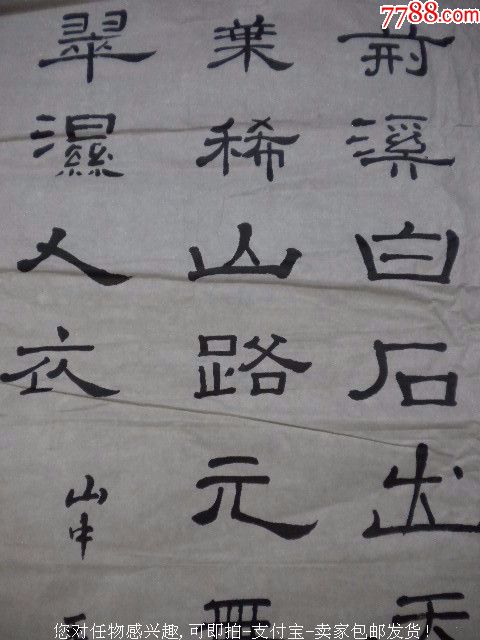 7788.com
荊溪白石出天
葉稀山路元無
翠濕人衣
山中
您对任物感兴趣,可即拍-支付宝-卖家包邮发货!